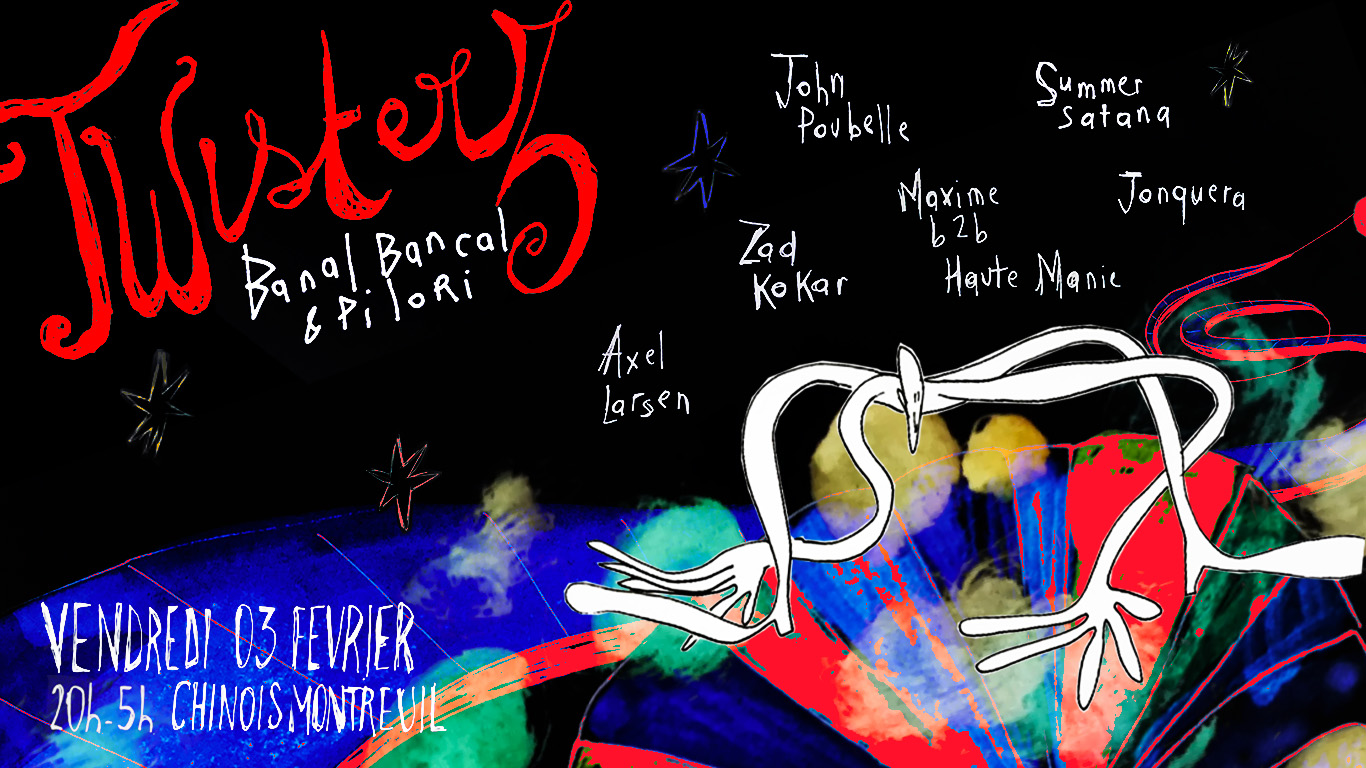 Twister
Banal Bancal
& Pilori
John
Poubelle
Summer
satana
Maxime
b2b
Haute Manie
Jonquera
Zad
Kokar
Axel
Larsen
VENDREDI 03 FEVRIER
20h-5h CHINOIS MONTREUIL